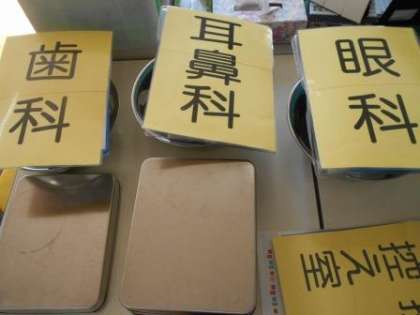 歯科
耳鼻科
眼科
控え室